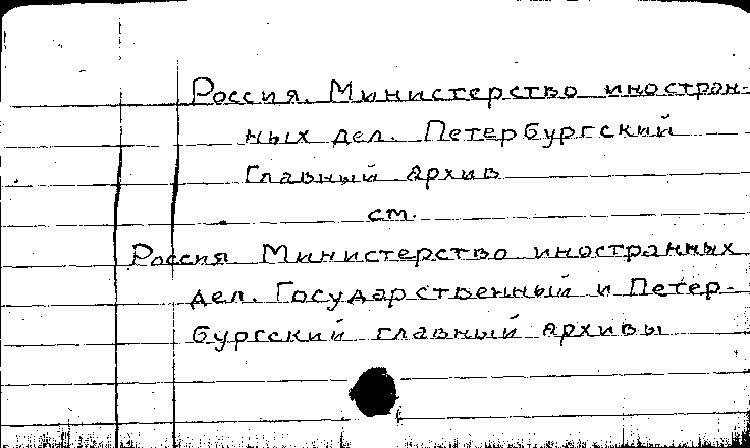 Россия. Министерство иностран-
ных дел. Петербургский
Главный архив
см.
Россия. Министерство иностранных
дел. Государственный и Петер-
бургский главный архивы